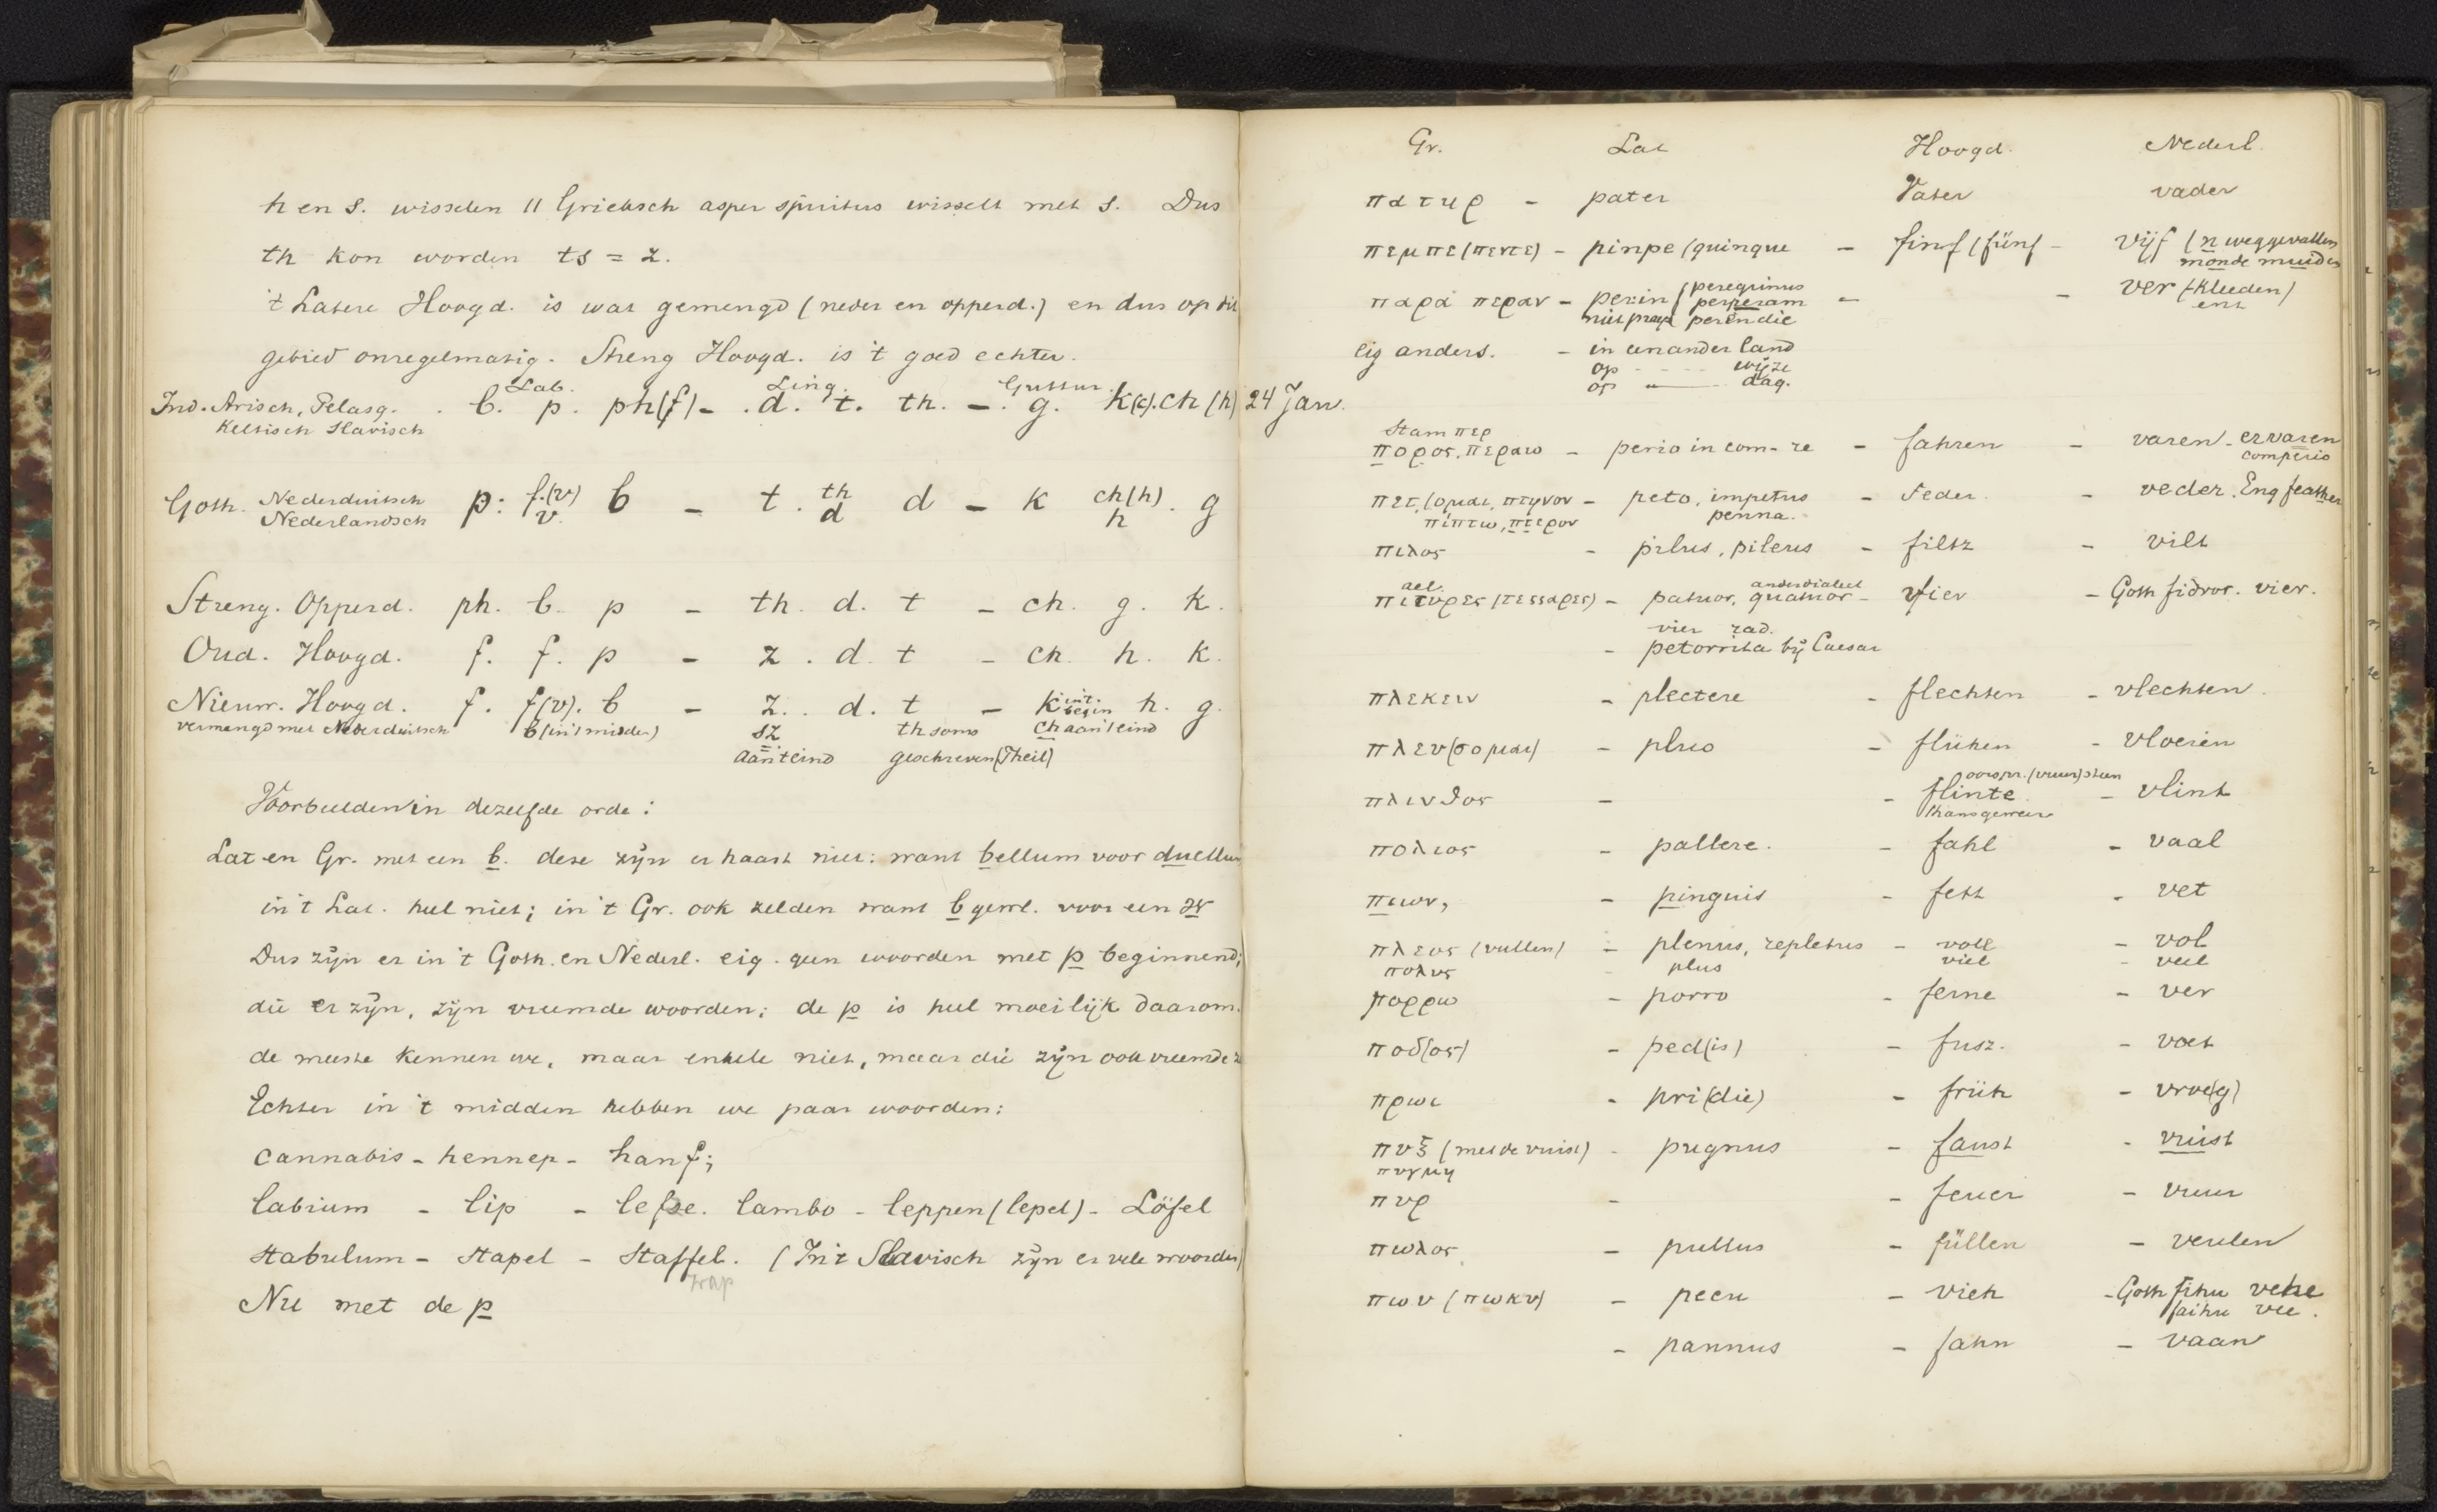 h en s. wisselen 11 Grieksch asper spiritus wisselt met s. Dus
th kon worden ts = z.
't Latere Hoogd. is wat gemengd (neder en opperd.) en dus op dit
gebied onregelmatig. Streng Hoogd. is 't goed echter.
Lab. Ling. Guttur.
Ind. Arisch, Pelasg. b. p. ph(f) - d. t. th. - g. k(c). ch (h)
Keltisch Slavisch
Goth. Nederduitsch Nederlandsch p: f.(v) v. b - t. th d d - k ch(h) h . g
Streng. Opperd. ph. b. p - th. d. t - ch. g. k.
Oud. Hoogd. f. f. p - z. d. t - ch. h. k.
Nieuw. Hoogd. f. f(v). b - z. d. t - k in 't begin h. g.
vermengd met Nederduitsch b (in 't midden) sz th soms ch aan 't eind
aan 't eind geschreven (Theil)
Voorbeelden in dezelfde orde:
Lat en Gr. met een b. deze zijn er haast niet: want bellum voor duellum
in 't Lat. heel niet; in 't Gr. ook zelden want b gew. voor een
Dus zijn er in 't Goth. en Nederl. eig. geen woorden met p beginnend;
die er zijn, zijn vreemde woorden; de p is heel moeilijk daarom.
de meeste kennen we, maar enkele niet, maar die zijn ook vreemde
Echter in 't midden hebben we paar woorden:
cannabis - hennep - hanf;
labium - lip - lefze. lambo - leppen (lepel) - Löfel
stabulum - stapel - staffel. (In 't Slavisch zijn er vele woorden)
trap
Nu met de p
Gr. Lat Hoogd. Nederl.
πατηρ - pater Vater vader
πεμπε (πεντε) - pinpe (quinque - finf (fünf - vijf (n weggevallen
monde muiden
παρα περαν - perin (peregrinus - - ver (-kleeden)
niet perperam ent
perendie
eig anders. - in een ander land
op - - - - wijze
op - - dag.
24 Jan.
Stam περ
πορος. περαω - perio in com- re - fahren - varen - ervaren
comperio
πετ(ομαι, πτηνον - peto, impetus - Feder. - veder. Eng feather
πιπτω, πτερον penna.
πιλος - pilus, pileus - filtz - vilt
ael. ander dialect
πιτυρες (τεσσαρες) - patuor, quatuor - vier - Goth fidvor. vier.
vier rad.
- petorrita bij Caesar
πλεκειν - plectere - flechten - vlechten.
πλευ(σομαι) - pluo - flühen - vloeien
oorspr. (vuur)steen
πλινθος - - flinte - vlint
thans geweer
πολιος - pallere. - fahl - vaal
πιων, - pinguis - fett - vet
πλεος (vullen) - plenus, repletus - voll - vol
πολυς - plus viel - veel
πορρω - porro - ferne - ver
ποδ(ος) - ped(is) - fusz. - voet
πρωι - pri(die) - früh - vroe(g)
πυξ (met de vuist) - pugnus - faust - vuist
πυγμη
πυρ - - feuer - vuur
πωλος - pullus - füllen - veulen
πωυ (πωκυ) - pecu - vieh - Goth fihu vehe
faihu vee.
- pannus - fahn - vaan